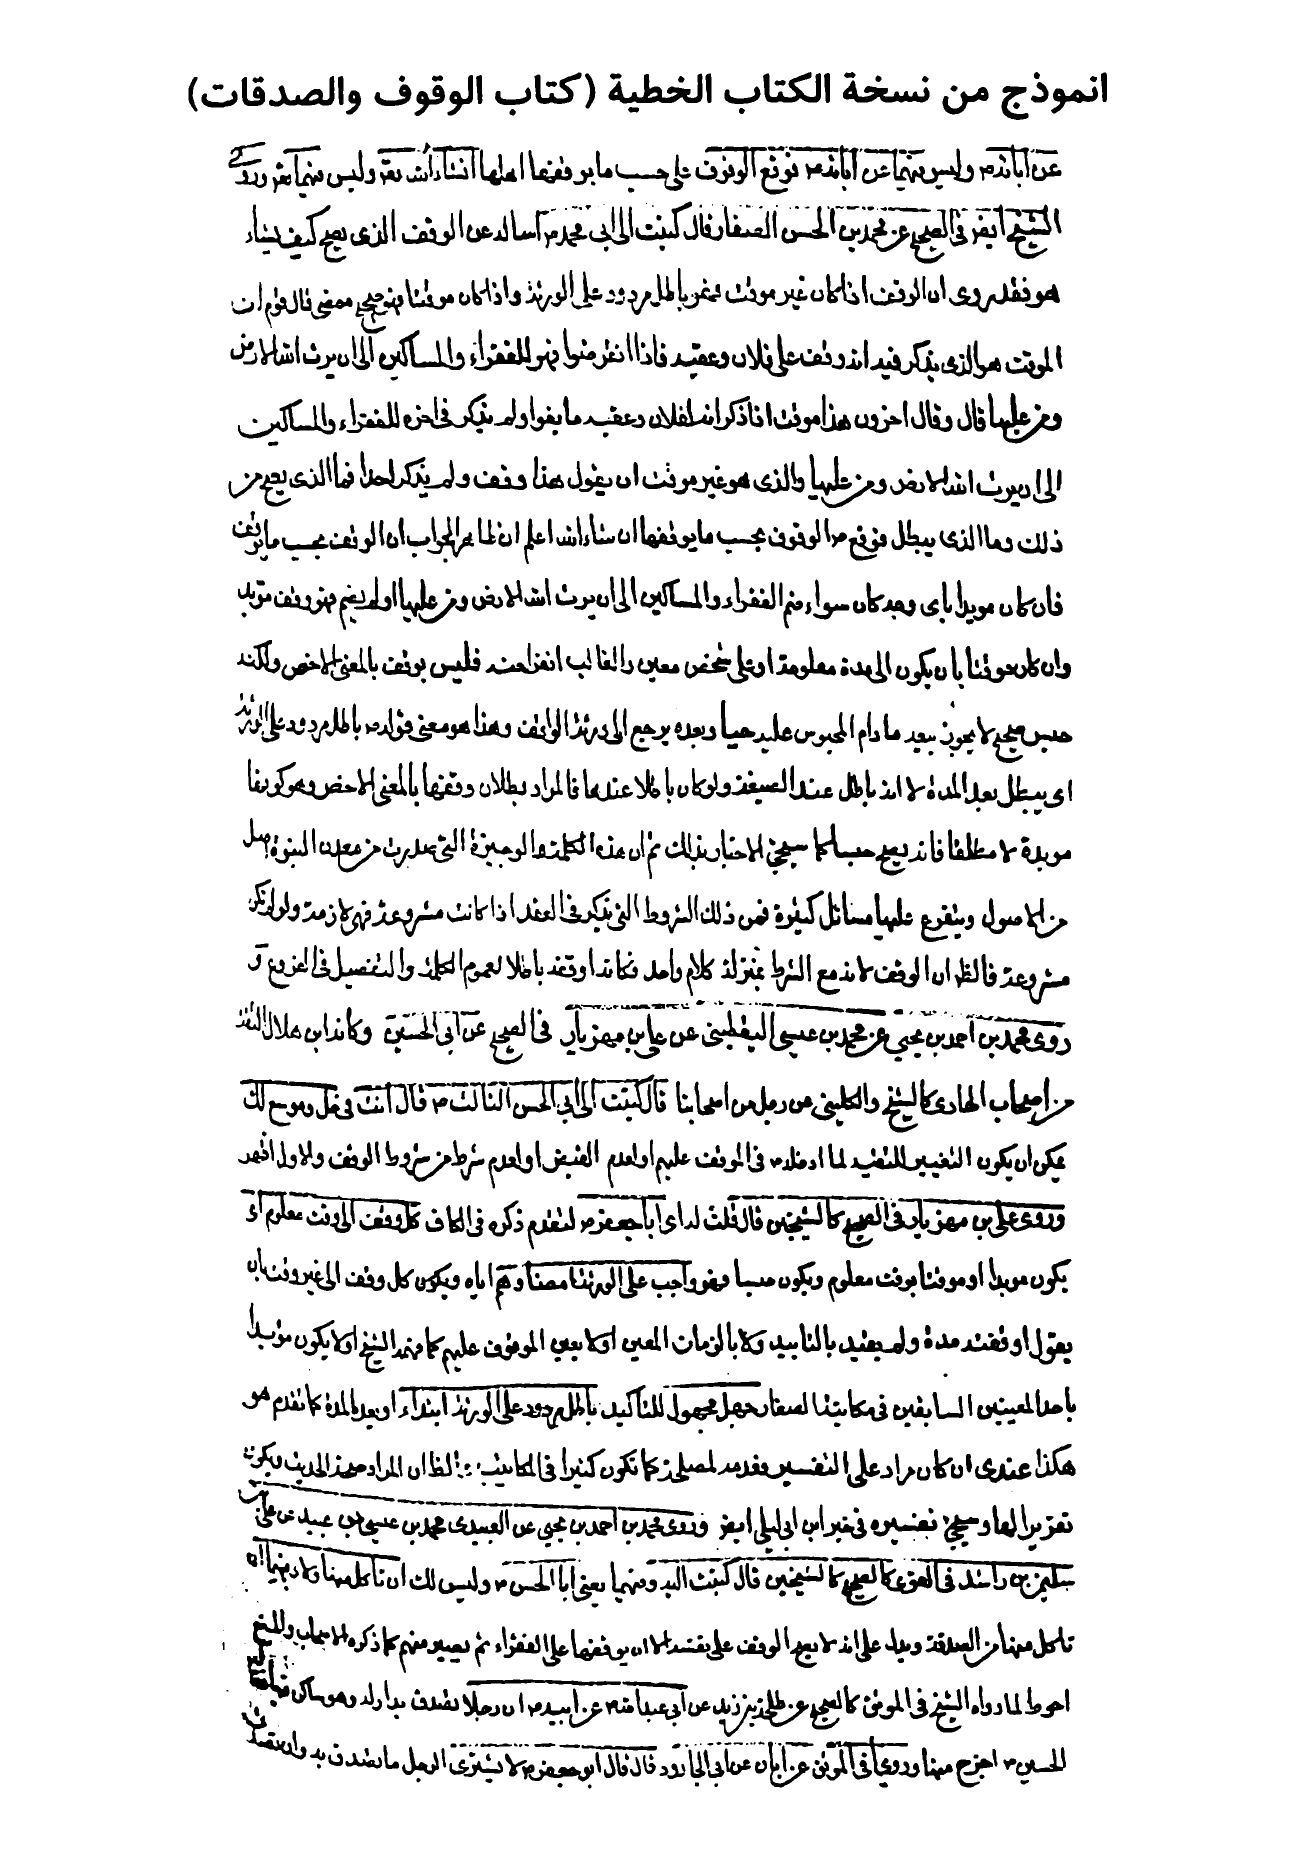 انموذج من نسخة الكتاب الخطية (كتاب الوقوف والصدقات)
عن ابائه م وليس فيهما عن ابائه م فوقع الوقوف على حسب ما يوقفها اهلها انشاء الله تعم وليس فيهما تعم وروى
الشيخ ايض في الصحيح عن محمد بن الحسن الصفار قال كتبت الى ابي محمد م اساله عن الوقف الذى يصح كيف يشاء
هو فقد روى ان الوقف اذا كان غير موقت فهو باطل مردود على الورثة واذا كان موقتا فهو صحيح ممضى قال قوم ان
الموقت هو الذى يذكر فيه انه وقف على فلان وعقبه فاذا انقرضوا فهو للفقراء والمساكين الى ان يرث الله الارض
ومن عليها قال وقال اخرون هذا موقت اذا ذكر انه لفلان وعقبه ما بقوا ولم يذكر في اخره للفقراء والمساكين
الى ان يرث الله الارض ومن عليها والذى هو غير موقت ان يقول هذا وقف ولم يذكر احدا فما الذى يصح من
ذلك وما الذى يبطل فوقع م الوقوف بحسب ما يوقفها ان شاء الله اعلم ان ظاهر الجواب ان الوقف بحسب ما يوقف
فان كان موبدا باى وجه كان سواء ضم الفقراء والمساكين الى ان يرث الله الارض ومن عليها اولم يضم فهو وقف موبد
وان كان موقتا بان يكون الى مدة معلومة او على شخص معين والغالب انقراضه فليس بوقف بالمعنى الاخص ولكنه
حبس صحيح لا يجوز بيعه ما دام المحبوس عليه حيا وبعده يرجع الى ورثة الواقف وهذا هو معنى قوله م باطل مردود على الورثة
اى يبطل بعد المدة لا انه باطل عند الصيغة ولو كان باطلا عندها فالمراد بطلان وقفها بالمعنى الاخص وهو كونها
موبدة لا مطلقا فانه يصح حبسا كما سيجئ الاخبار بذلك ثم ان هذه الكلمة الوجيزة التى صدرت من معدن النبوة اصل
من الاصول ويتفرع عليها مسائل كثيرة فمن ذلك الشروط التى يذكر في العقد اذا كانت مشروعة فهى لازمة ولو لم تكن
مشروعة فالظ ان الوقف لانه مع الشرط بمنزلة كلام واحد فكانه اوقفه باطلا لعموم الكلمة والتفصيل في الفروع و
روى محمد بن احمد بن يحيى عن محمد بن عيسى اليقطينى عن على بن مهزيار في الصحيح عن ابى الحسين وكانه ابن هلال الثقة
من اصحاب الهادى كالشيخ والكلينى عن رجل من اصحابنا قال كتبت الى ابى الحسن الثالث م قال انت في حل وموسع لك
يمكن ان يكون التغيير للتقية لما ادخله م في الوقف عليهم او لعدم القبض او لعدم شرط من شروط الوقف والاول اظهر
وروى على بن مهزيار في الصحيح كالشيخين قال قلت له اى ابا جعفر م لتقدم ذكره في الكاف كل وقف الى وقت معلوم اى
يكون موبدا او موقتا بوقت معلوم ويكون حبسا فهو واجب على الورثة امضاؤهم اياه ويكون كل وقف الى غير وقت بان
يقول اوقفته مدة ولم يقيد بالتابيد ولا بالزمان المعين او لا يعين الموقوف عليهم كما فهمه الشيخ او لا يكون موبدا
باحد المعنيين السابقين في مكاتبة الصفار جهل مجهول للتأكيد باطل مردود على الورثة ابتداء او بعد المدة كما تقدم هو
هكذا عندى ان كان مراد على التفسير وقدمه لمصلحة كما تكون كثيرا في المكاتيب والظ ان المراد بهذا الحديث ويكون
تقرير العا وسيجئ تفسيره في خبر ابن ابى ليلى ايض وروى محمد بن احمد بن يحيى عن العبيدى محمد بن عيسى بن عبيد عن على بن
سليمن بن راشد في القوى كالصحيح كالشيخين قال كتبت اليه وفيهما يعنى ابا الحسن م وليس لك ان تاكل منها ولا فيهما ان
تاكل منها من الصدقة ويدل على انه لا يصح الوقف على نفسه الا ان يوقفها على الفقراء ثم يصير منهم كما ذكره الاصحاب والمنع
احوط لما رواه الشيخ في الموثق كالصحيح عن طلحة بن زيد عن ابى عبد الله م عن ابيه م ان رجلا تصدق بدار له وهو ساكن فيها فقال
الحسين م اخرج منها وروى في الموثق عن ابان عن ابى الجارود قال قال ابو جعفر م لا يشترى الرجل ما تصدق به وان تصدق